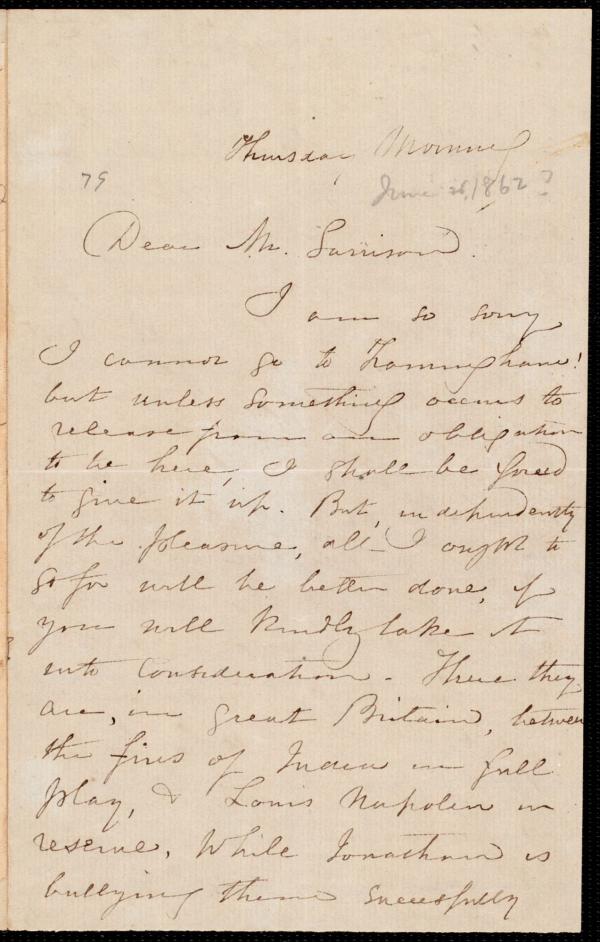 Thursday Morning
79
June 26, 1862?
Dear Mr. Garrison.
I am so sorry
I cannot go to Framingham!
but unless something occurs to
release from an obligation
to be here, I shall be forced
to give it up. But, independently
of the pleasure, all I ought to
go for will be better done, if
you will kindly take it
into consideration. There they
are, in great Britain, between
the fires of India in full
play, & Louis Napoleon in
reserve, While Jonathan is
bullying them successfully